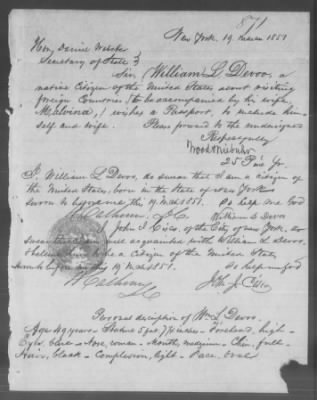 871
New York 19 March 1851
Hon. Daniel Webster
Secretary of State
Sir, William L Devoo, a
native Citizen of the United States about visiting
foreign Countries (to be accompanied by his wife
Malvina,) wishes a Passport, to include him
self and wife. Please forward to the undersigned
Respectfully
25 Pine St
I, William L Devoo, do swear that I am a citizen of
the United States, born in the State of New York
sworn to before me this 19 March 1851. So help me God
William L Devoo
I John J Cisco, of the City of New York, do
swear that I am well acquainted with William L Devoo,
believe him to be a citizen of the United States
sworn to before me this 19 March 1851. So help me God
John J. Cisco
Personal description of Wm L Devoo.
Age 49 years - Stature 5 feet 7 ½ inches - Forehead, high -
Eyes, blue - Nose, roman - Mouth, medium - Chin, full -
Hair, black - Complexion, light - Face, oval